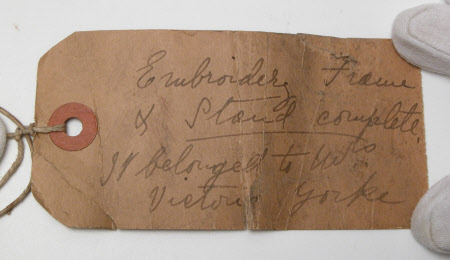 Embroidery Frame
& Stand complete
It belonged to Mrs
Victor Yorke